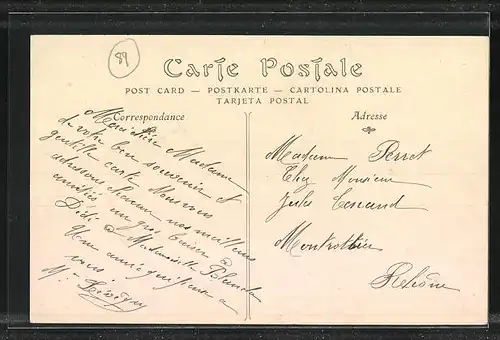 89
Carte Postale
POST CARD — POSTKARTE — CARTOLINA POSTALE
TARJETA POSTAL
Correspondance
Merci chère Madame
de votre bon souvenir et
gentille carte Nous vous
adressons nos meilleurs
amitiés un gros baiser
Mademoiselle
Une amie qui pense a
vous
Adresse
Madame Perret
Chez Monsieur
Jules
Montrottier
Rhône